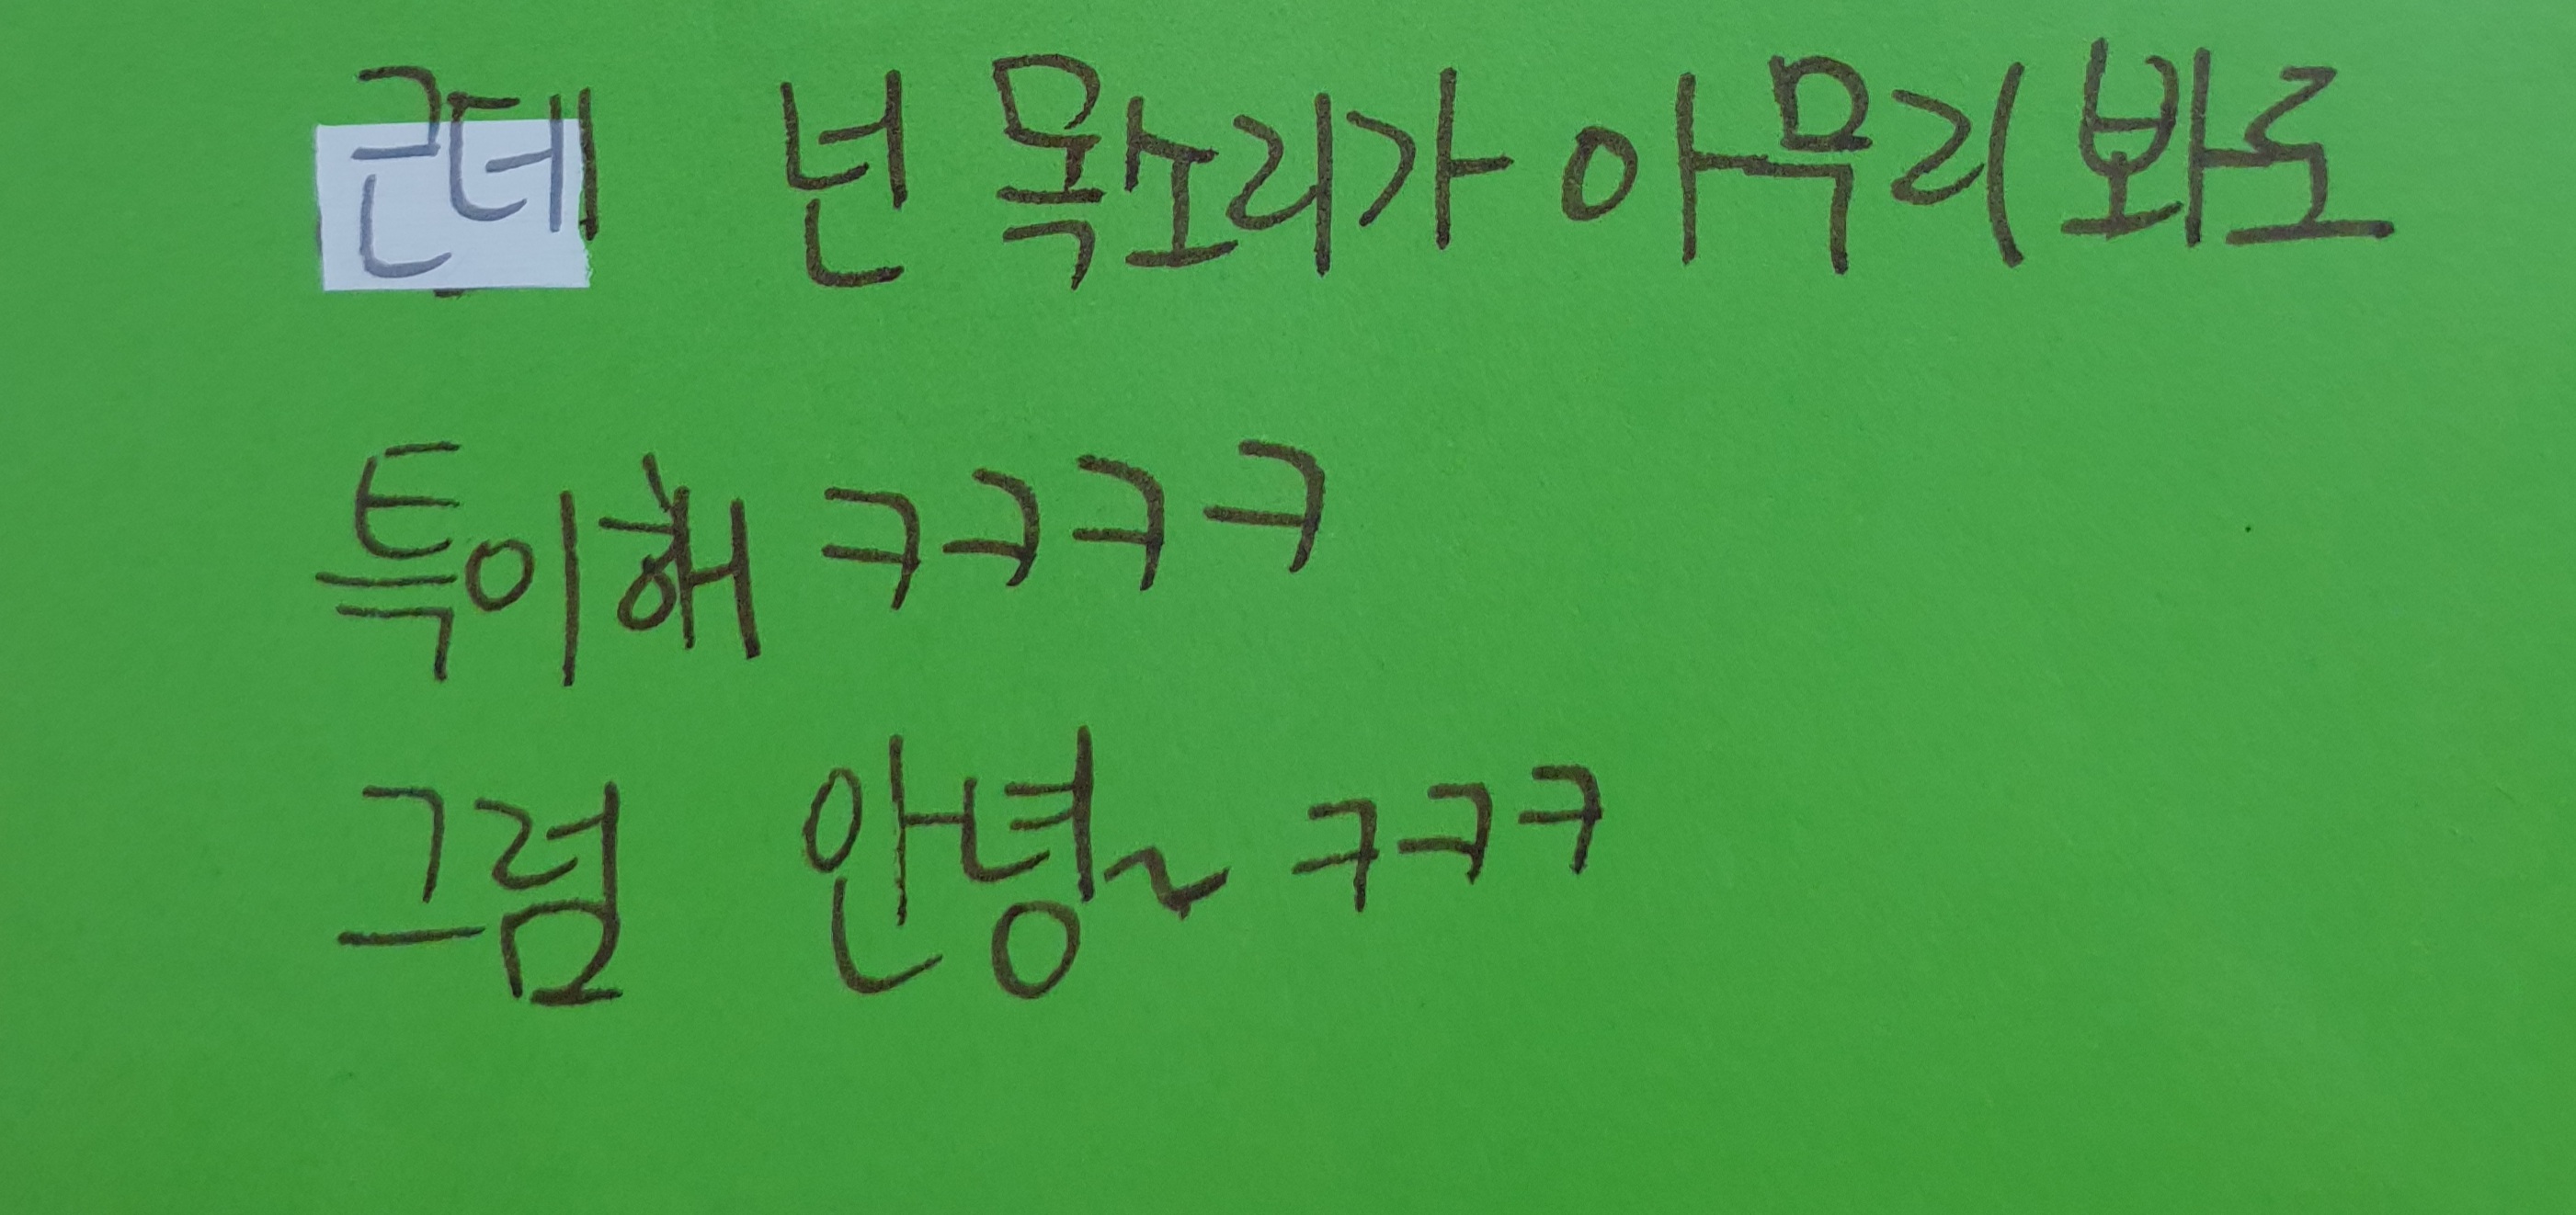 근데 넌 목소리가 아무리 봐도
특이해 ㅋㅋㅋㅋ
그럼 안녕~ ㅋㅋㅋ